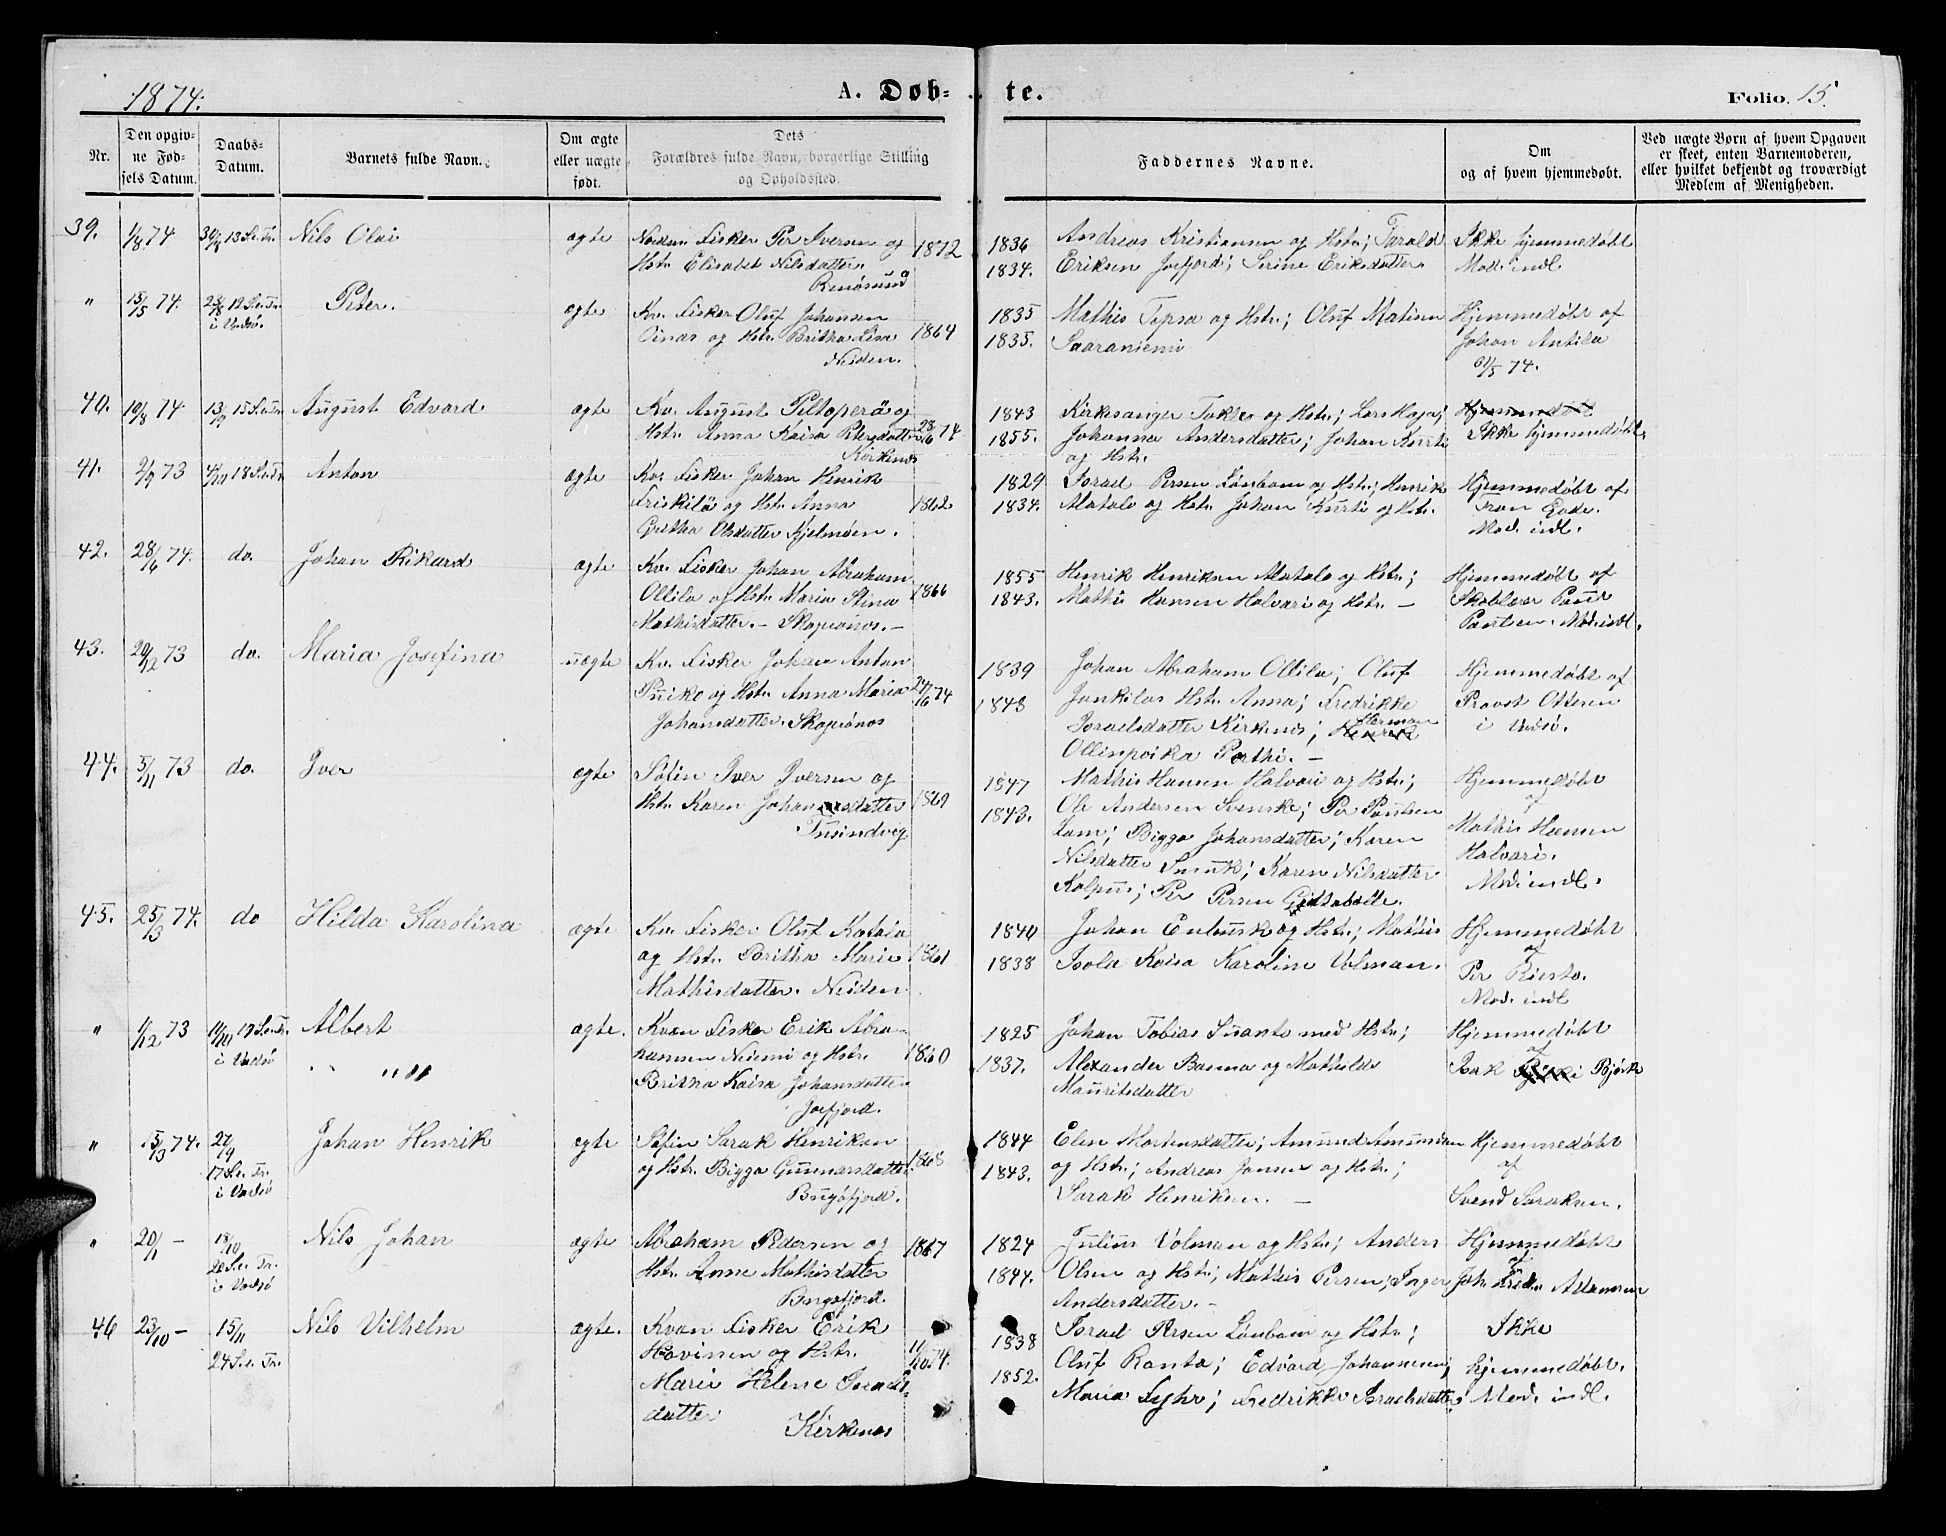 1874.
A. Døb-
te.
Folio. 15.
Nr.
Den opgiv-
ne Fød-
sels Datum.
Daabs-
Datum.
Barnets fulde Navn.
Om ægte
eller uægte
født.
Dets
Forældres fulde Navn, borgerlige Stilling
og Opholdssted.
Faddernes Navne.
Om
og af hvem hjemmedøbt.
Ved uægte Børn af hvem Opgaven
er skeet, enten Barnemoderen,
eller hvilket bekjendt og troværdigt
Medlem af Menigheden.
39. 1/8 74 30/8 13 S.e.Tr. Nils Olai ægte Nordm. Fisker Per Iversen og 1872 1836 Andreas Kristiansen og Hstr; Tarald Ikke hjemmedøbt
Hstr. Elisabet Nilsdatter. 1834. Eriksen Jarfjord; Serine Eriksdatter. Mod. indl
Renøsund
" 15/5 74. 23/8 12 S.e.Tr. Peter. ægte Kv. Fisker Oluf Johansen 1835 Mathis Topsa og Hstr; Oluf Matisen Hjemmedøbt af
i Vadsø. Oinas og Hstr. Britha Lisa 1864 1835. Saaraniemi Johan Antila
Neiden. 31/5 74.
40. 10/8 74. 13/9 15 S.e.Tr. August Edvard ægte Kv. August Piltoperä og 1843 Kirkesanger Tokle og Hstr; Lars Haga; Hjemmedøbt
Hstr. Anna Kaisa Petersdatter 28/6 74 1855. Johanna Andersdatter; Johan Kurti Ikke hjemmedøbt.
Kirkenes og Hstr.
41. 2/9 73 4/10 18 S.e.Tr. Anton ægte Kv. Fisker Johan Henrik 1829 Israel Persen Lønbom og Hstr; Henrik Hjemmedøbt af
Friskilä og Hstr. Anna 1862 1834. Matala og Hstr. Johan Kurti og Hstr. Fron Gade.
Gretha Olsdatter Kjelmøen. Mod. indl.
42. 28/6 74. do. Johan Rikard ægte Kv. Fisker Johan Abraham 1855 Henrik Henriksen Matala og Hstr; Hjemmedøbt af
Ollila og Hstr. Maria Stina 1866 1843. Mathis Hansen Halvari og Hstr. — Skolelærer Paul
Mathisdatter. – Skogerønes. – Paulsen. Mod. indl.
43. 29/12 73 do. Maria Josefina uægte Kv. Fisker Johan Anton 1839 Johan Abraham Ollila; Oluf Hjemmedøbt af
Puiko og Hstr. Anna Maria 24/6 74 1848 Junkilas Hstr. Anna; Fredrikke Provst Ottesen
Johansdatter. Skogerønes Israelsdatter Kirkenes; Henrik Herman i Vadsø.
Ollinpoika Porthi. –
44. 5/11 73 do. Iver ægte Søfin Iver Iversen og 1847 Mathis Hansen Halvari og Hstr; Hjemmedøbt
Hstr. Karen Johannesdatter 1869 1843. Ole Andersen Svenske; Per Paulsen af
Tusindvig Lam; Bigga Johansdatter; Karen Mathis Hansen
Nilsdatter Smuk; Karen Nilsdatter Halvari.
Kalpus; Per Persen Mod. indl.
45. 25/3 74. do Hilda Karolina ægte Kv. Fisker Oluf Katala 1840 Johan Enbusk og Hstr; Mathis Hjemmedøbt
og Hstr. Britha Marie 1861 1838 Isola Kaisa Karoline Volman. af
Mathisdatter. Neiden Per Riesto.
Mod. indl
" 1/12 73 11/10 19 S.e.Tr. Albert ægte. Kvæn Fisker Erik Abra- 1825 Johan Tobias Suanto med Hstr; Hjemmedøbt
i Vadsø hamsen Niemi og Hstr. 1860 1837. Alexander Banna og Mathilde af
Britha Kaisa Johansdatter Mauritsdatter Isak Bjørk
Jarfjord.
" 15/3 74. 27/9 Johan Henrik ægte Søfin Sarak Henriksen 1844 Elen Mortensdatter; Amund Amundsen Hjemmedøbt
17 S.e.Tr. og Hstr. Bigga Gunnarsdatter 1868 1843. og Hstr; Andreas Jonsen og Hstr; af
i Vadsø Bugøfjord. Sarak Henriksen. — Svend Saraksen.
" 20/1 – 18/10 Nils Johan ægte Abraham Pedersen og 1867 1824 Julius Volman og Hstr; Anders Hjemmedøbt
20 S.e.Tr. Hstr. Anne Mathisdatter 1844. Olsen og Hstr; Mathis Persen; Inger af
i Vadsø Bugøfjord. Andersdatter. – Joh. Adamsen
46 23/10 – 15/11 Nils Vilhelm ægte. Kvæn Fisker Erik 1838 Israel Persen Lønbom og Hstr; Ikke
24 S.e.Tr. Hovinen og Hstr. 11/10 74. 1852. Oluf Ranta; Edvard Johannesen; hjemmedøbt.
Marie Helene Israels- Maria Fyhr; Fredrikke Israelsdatter Mod. indl.
datter
Kirkenes